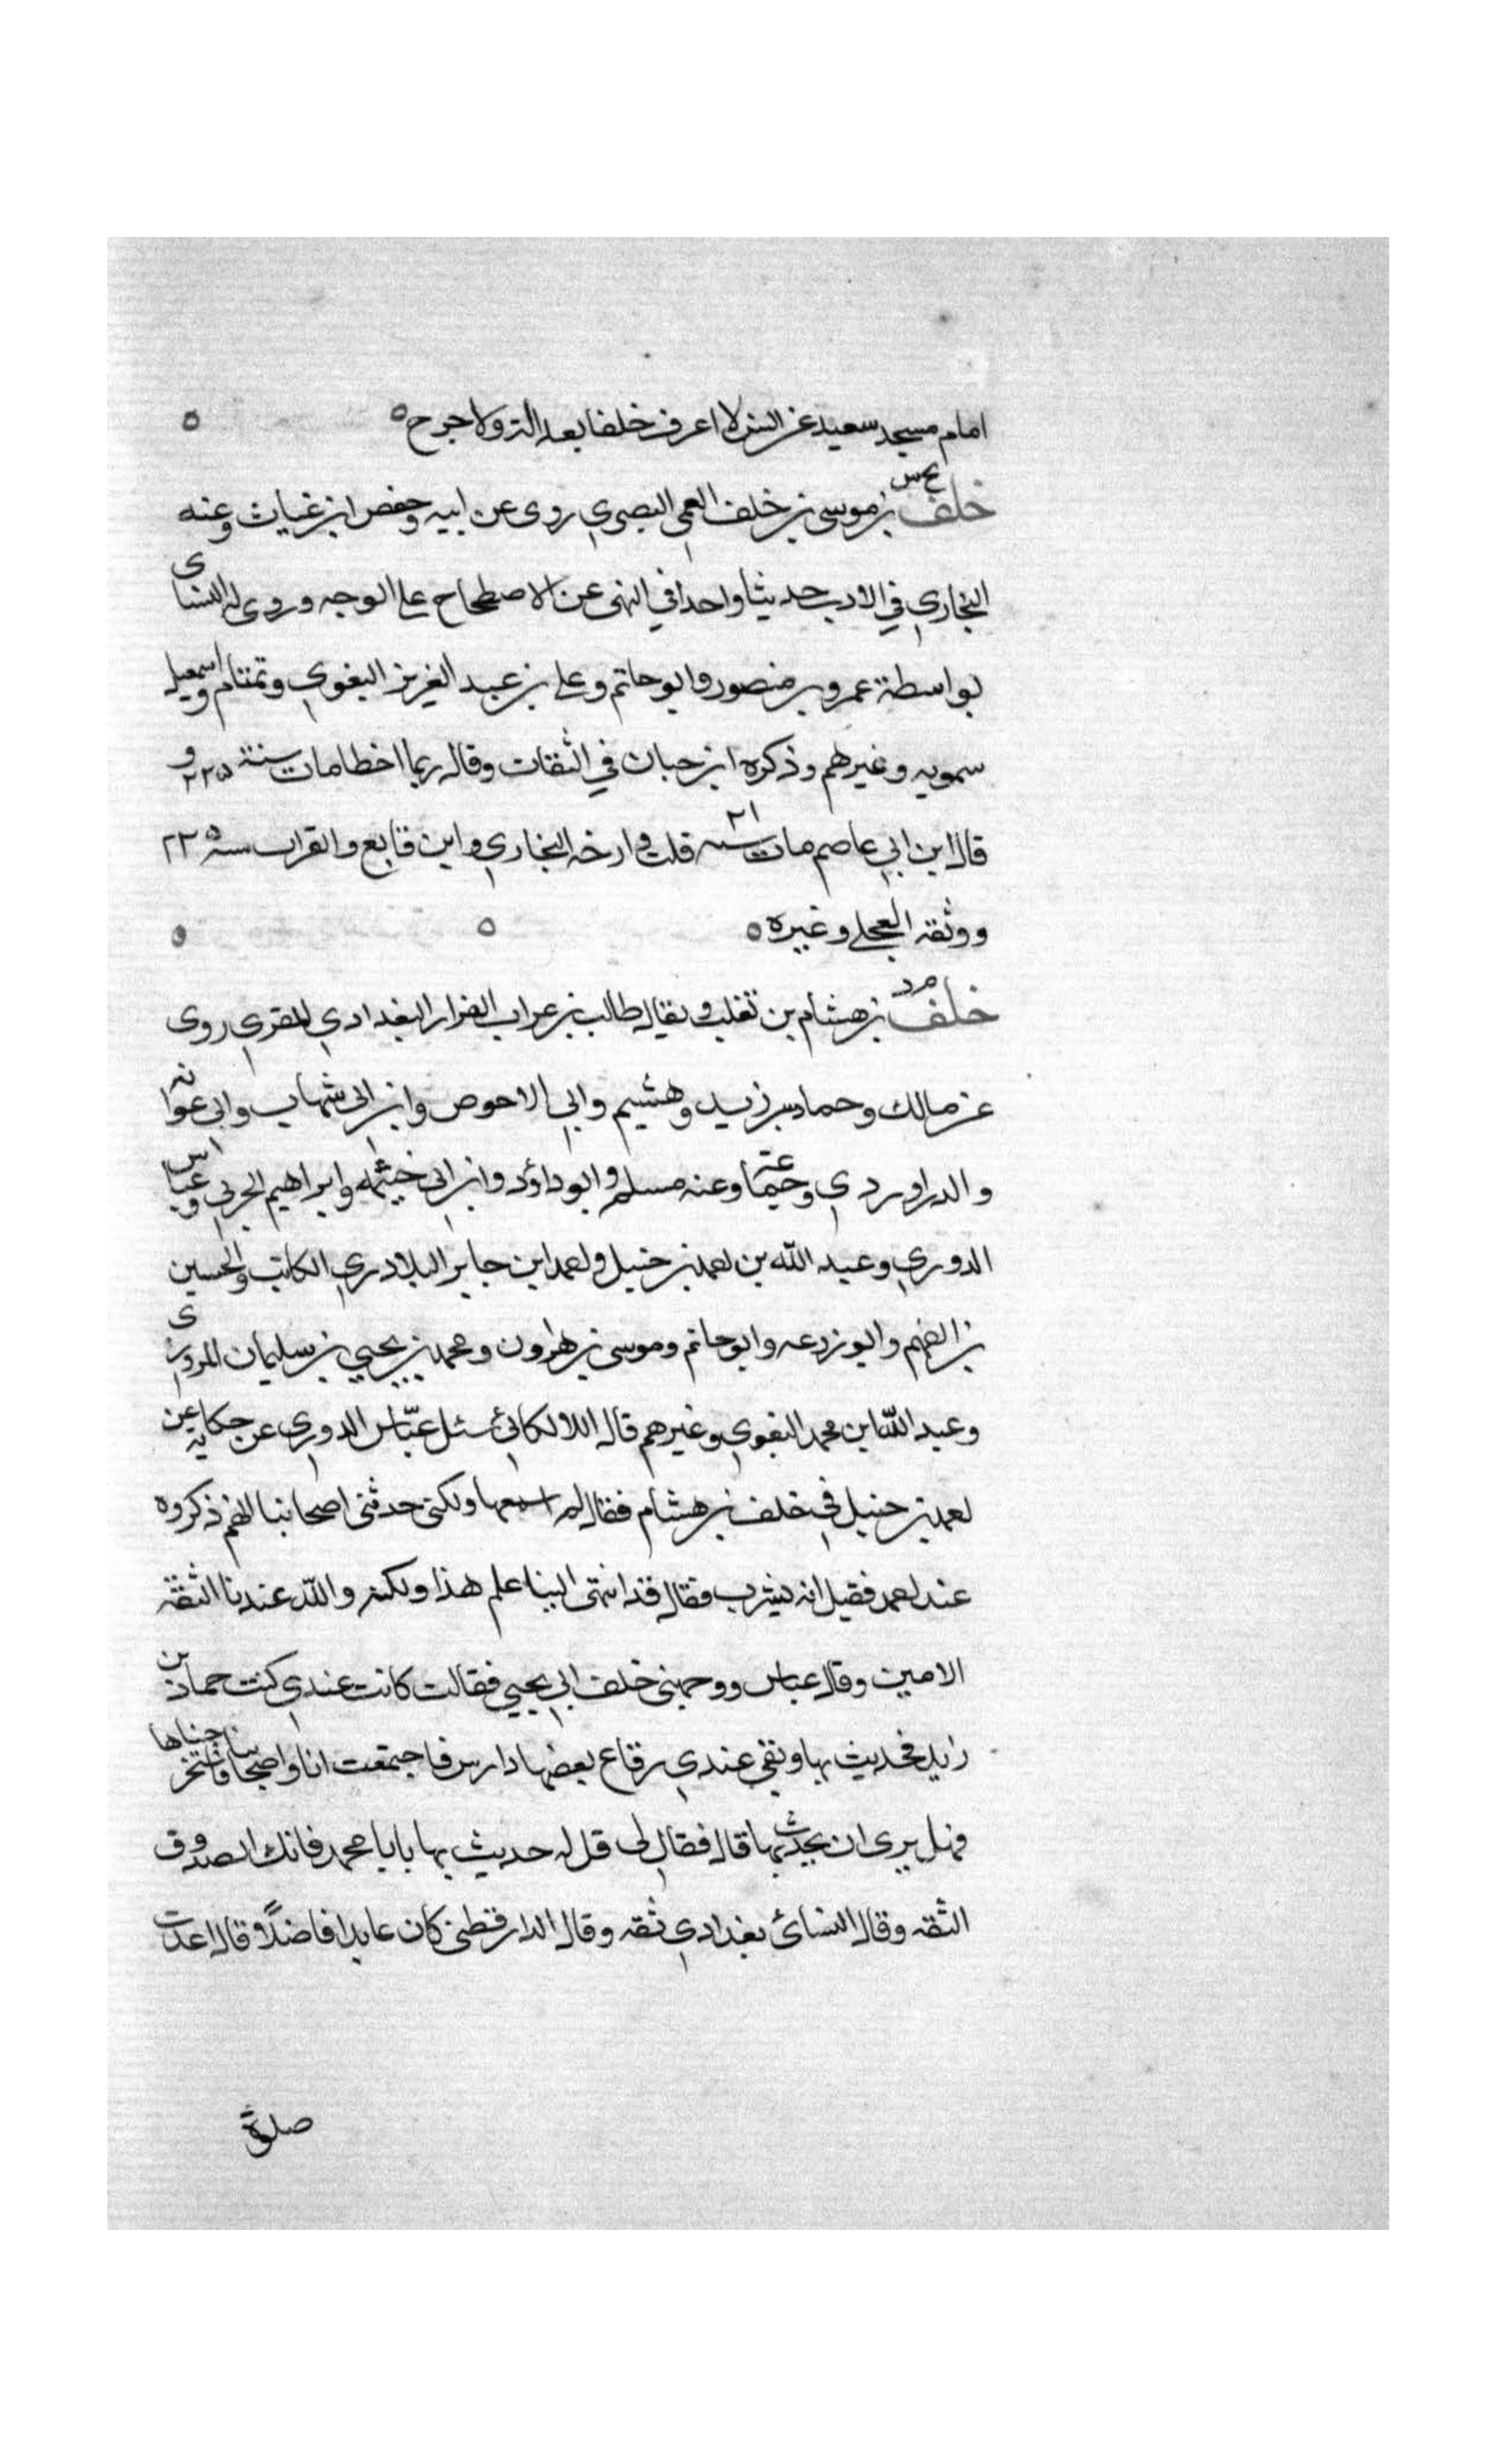 امام مسجد سعيد عن انس لا اعرف خلفا بعدالة ولا جرح ه ه
خلف بخ س بن موسى بن خلف العمي البصري روى عن ابيه وحفص ابن غياث وعنه
البخاري في الادب حديثا واحدا في النهى عن الاضطجاع على الوجه وروى له النسائى
بواسطة عمرو بن منصور وابو حاتم وعلى بن عبد العزيز البغوي وتمتام واسمعيل
سمويه وغيرهم وذكره ابن حبان في الثقات وقال ربما اخطا مات سنة ٢٢٥ و
قال ابن ابي عاصم مات سنه ٢١ قلت وارخه البخاري وابن قانع والقراب سنة ٢٢٥
ووثقه العجلى وغيره ه ه ه
خلف م د بن هشام بن تغلب ويقال طالب بن عراب البزار البغدادي المقري روى
عن مالك وحماد بن زيد وهشيم وابي الاحوص وابن ابى شهاب وابى عوانه
والدراوردي وجماعة وعنه مسلم وابو داؤد وابن ابى خيثمه وابراهيم الحربي وعباس
الدوري وعبد الله بن احمد بن حنبل واحمد ابن جابر البلادري الكاتب والحسين
بن الفهم وابو زرعه وابو حاتم وموسى بن هرون ومحمد بن يحيي بن سليمان المروزى
وعبد الله ابن محمد البغوي وغيرهم قال اللالكائى سئل عباس الدوري عن حكايه عن
احمد بن حنبل في خلف بن هشام فقال لم اسمعها ولكنى حدثنى اصحابنا انهم ذكروه
عند احمد فقيل انه يشرب فقال قد انتهى الينا علم هذا ولكنه والله عندنا الثقة
الامين وقال عباس ووجهنى خلف الي يحيي فقالت كانت عندي كتب حماد بن
زايد فحديث بها وبقى عندي رقاع بعضها دارس فاجتمعت انا واصحابنا فاستخرجناها
فهل يرى ان يحدث بها قال فقال لى قل له حديث بها يابا محمد فانك الصدوق
الثقه وقال النسائ بغدادي ثقه وقال الدارقطنى كان عابدا فاضلاً وقال اعدت
صلوة